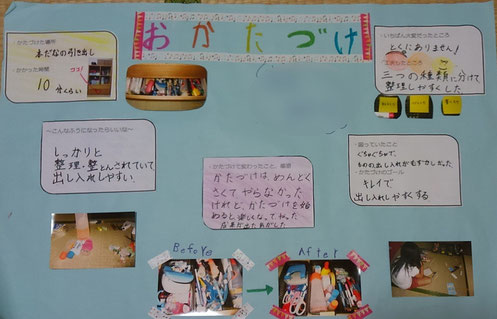 おかたづけ
・かたづけた場所
本だなの引き出し
・かかった時間
ココ!
10分くらい
・いちばん大変だったところ
とくにありません!
・工夫したところ
三つの種類に分けて
整理しやすくした
~こんなふうになったらいいな~
しっかりと
整理・整とんされていて
出し入れしやすい
・かたづけで変わったこと、感想
かたづけは、めんどく
さくてやらなかった
けれど、かたづけを始
めると、楽しくなって、やった
成果が出た気がした
・困っていたこと
ぐちゃぐちゃで、
ものの出し入れがむずかしかった
・かたづけのゴール
キレイで
出し入れしやすくする
Before
After